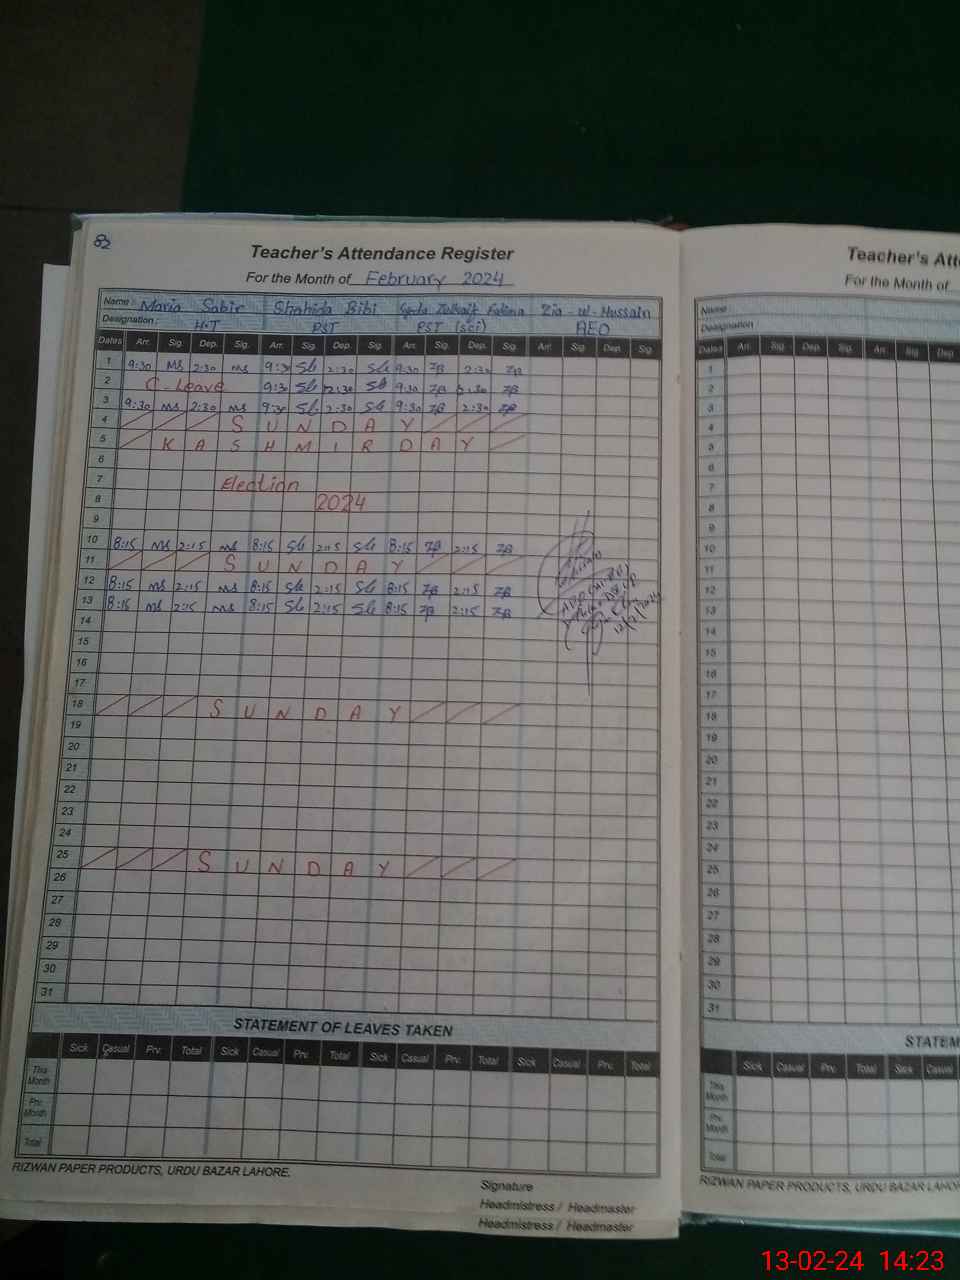 82
Teacher's Attendance Register
For the Month of February 2024
Name : Maria Sabir Shahida Bibi Fatima Zia-ul-Hussain
Designation : H.T PST PST (sci) AEO
Dates Arr. Sig. Dep. Sig. Arr. Sig. Dep. Sig. Arr. Sig. Dep. Sig. Arr. Sig. Dep. Sig.
1 9:30 MS 2:30 MS 9:30 Sb 2:30 Sb 9:30 ZB 2:30 ZB
2 C-Leave 9:30 Sb 2:30 Sb 9:30 ZB 2:30 ZB
3 9:30 MS 2:30 MS 9:30 Sb 2:30 Sb 9:30 ZB 2:30 ZB
4 SUNDAY
5 KASHMIR DAY
6
7 Election
8 2024
9
10 8:15 MS 2:15 MS 8:15 Sb 2:15 Sb 8:15 ZB 2:15 ZB
11 SUNDAY
12 8:15 MS 2:15 MS 8:15 Sb 2:15 Sb 8:15 ZB 2:15 ZB
13 8:15 MS 2:15 MS 8:15 Sb 2:15 Sb 8:15 ZB 2:15 ZB
12/2/2024
14
15
16
17
18 SUNDAY
19
20
21
22
23
24
25 SUNDAY
26
27
28
29
30
31
STATEMENT OF LEAVES TAKEN
Sick Casual Prv. Total Sick Casual Prv. Total Sick Casual Prv. Total Sick Casual Prv. Total
This Month
Prv. Month
Total
RIZWAN PAPER PRODUCTS, URDU BAZAR LAHORE.
Signature
Headmistress / Headmaster
Headmistress / Headmaster
Teacher's Att
For the Month of
Name
Designation
Dates Arr. Sig. Dep. Sig. Arr. Sig. Dep
1
2
3
4
5
6
7
8
9
10
11
12
13
14
15
16
17
18
19
20
21
22
23
24
25
26
27
28
29
30
31
STATEM
Sick Casual Prv. Total Sick Casual
This Month
Prv. Month
Total
RIZWAN PAPER PRODUCTS, URDU BAZAR LAHOR
13-02-24 14:23